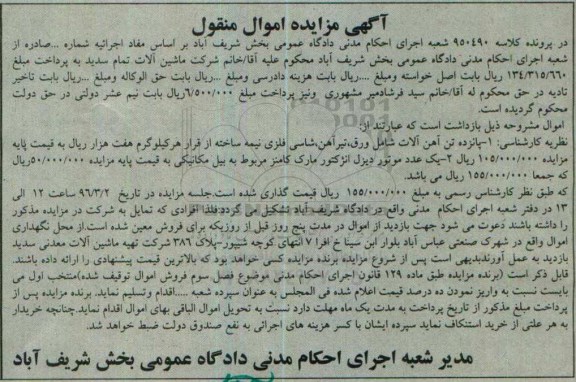 آگهی مزایده اموال منقول
در پرونده کلاسه ۹۵۰۴۹۰ شعبه اجرای احکام مدنی دادگاه عمومی بخش شریف آباد بر اساس مفاد اجرائیه شماره ...صادره از
شعبه اجرای احکام مدنی دادگاه عمومی بخش شریف آباد محکوم علیه آقا/خانم شرکت ماشین آلات تمام سدید به پرداخت مبلغ
۱۳۴/۳۱۵/۶۶۰ ریال بابت اصل خواسته ومبلغ ....ریال بابت هزینه دادرسی ومبلغ ...ریال بابت حق الوکاله ومبلغ ...ریال بابت تاخیر
تادیه در حق محکوم له آقا/خانم سید فرشادمیر مشهوری ونیز پرداخت مبلغ ۶/۵۰۰/۰۰۰ریال بابت نیم عشر دولتی در حق دولت
محکوم گردیده است.
اموال مشروحه ذیل بازداشت است که عبارتند از:
نظریه کارشناسی: ۱-پانزده تن آهن آلات شامل ورق،تیرآهن،شاسی فلزی نیمه ساخته از قرار هرکیلوگرم هفت هزار ریال به قیمت پایه
مزایده ۱۰۵/۰۰۰/۰۰۰ ریال ۲-یک عدد موتور دیزل انژکتور مارک کامنز مربوط به بیل مکانیکی به قیمت پایه مزایده ۵۰/۰۰۰/۰۰۰ریال
که جمعا ۱۵۵/۰۰۰/۰۰۰ ریال می باشد.
که طبق نظر کارشناس رسمی به مبلغ ۱۵۵/۰۰۰/۰۰۰ ریال قیمت گذاری شده است.جلسه مزایده در تاریخ ۹۶/۳/۲ ساعت ۱۲ الی
۱۳ در دفتر شعبه اجرای احکام مدنی واقع در دادگاه شریف آباد تشکیل می گردد.فلذا افرادی که تمایل به شرکت در مزایده مذکور
را داشته باشند دعوت می شود جهت بازدید از اموال در مدت پنج روز قبل از روزیکه برای فروش معین شده است.از محل نگهداری
اموال واقع در شهرک صنعتی عباس آباد بلوار ابن سینا خ افرا ۷ انتهای کوچه شیپور-پلاک ۳۸۶ شرکت تهیه ماشین آلات معدنی سدید
بازدید به عمل آورندبدیهی است پس از شروع مزایده برنده مزایده کسی خواهد بود که بالاترین قیمت پیشنهادی را ارائه داده باشند.
قابل ذکر است (برنده مزایده طبق ماده ۱۲۹ قانون اجرای احکام مدنی موضوع فصل سوم فروش اموال توقیف شده)منتخب اول می
بایست نسبت به واریز نمودن ده درصد قیمت اعلام شده فی المجلس به عنوان سپرده شعبه .....اقدام وتسلیم نماید. برنده مزایده پس از
پرداخت مبلغ مذکور از تاریخ پرداخت به مدت یک ماه مهلت دارد نسبت به تحویل اموال الباقی بهای اموال اقدام نماید.چنانچه خریدار
به هر علتی از خرید استنکاف نماید سپرده ایشان با کسر هزینه های اجرائی به نفع صندوق دولت ضبط خواهد شد.
مدیر شعبه اجرای احکام مدنی دادگاه عمومی بخش شریف آباد